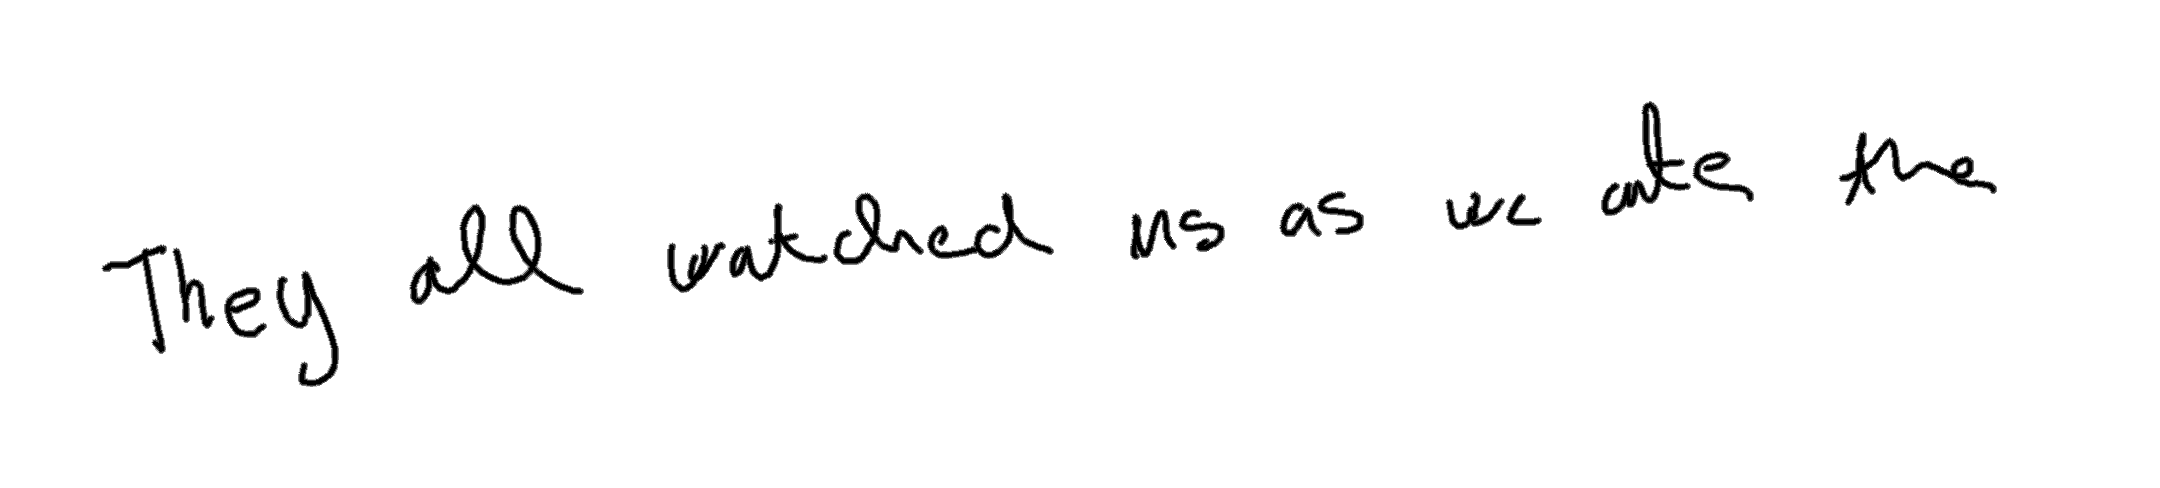 They all watched us as we ate the